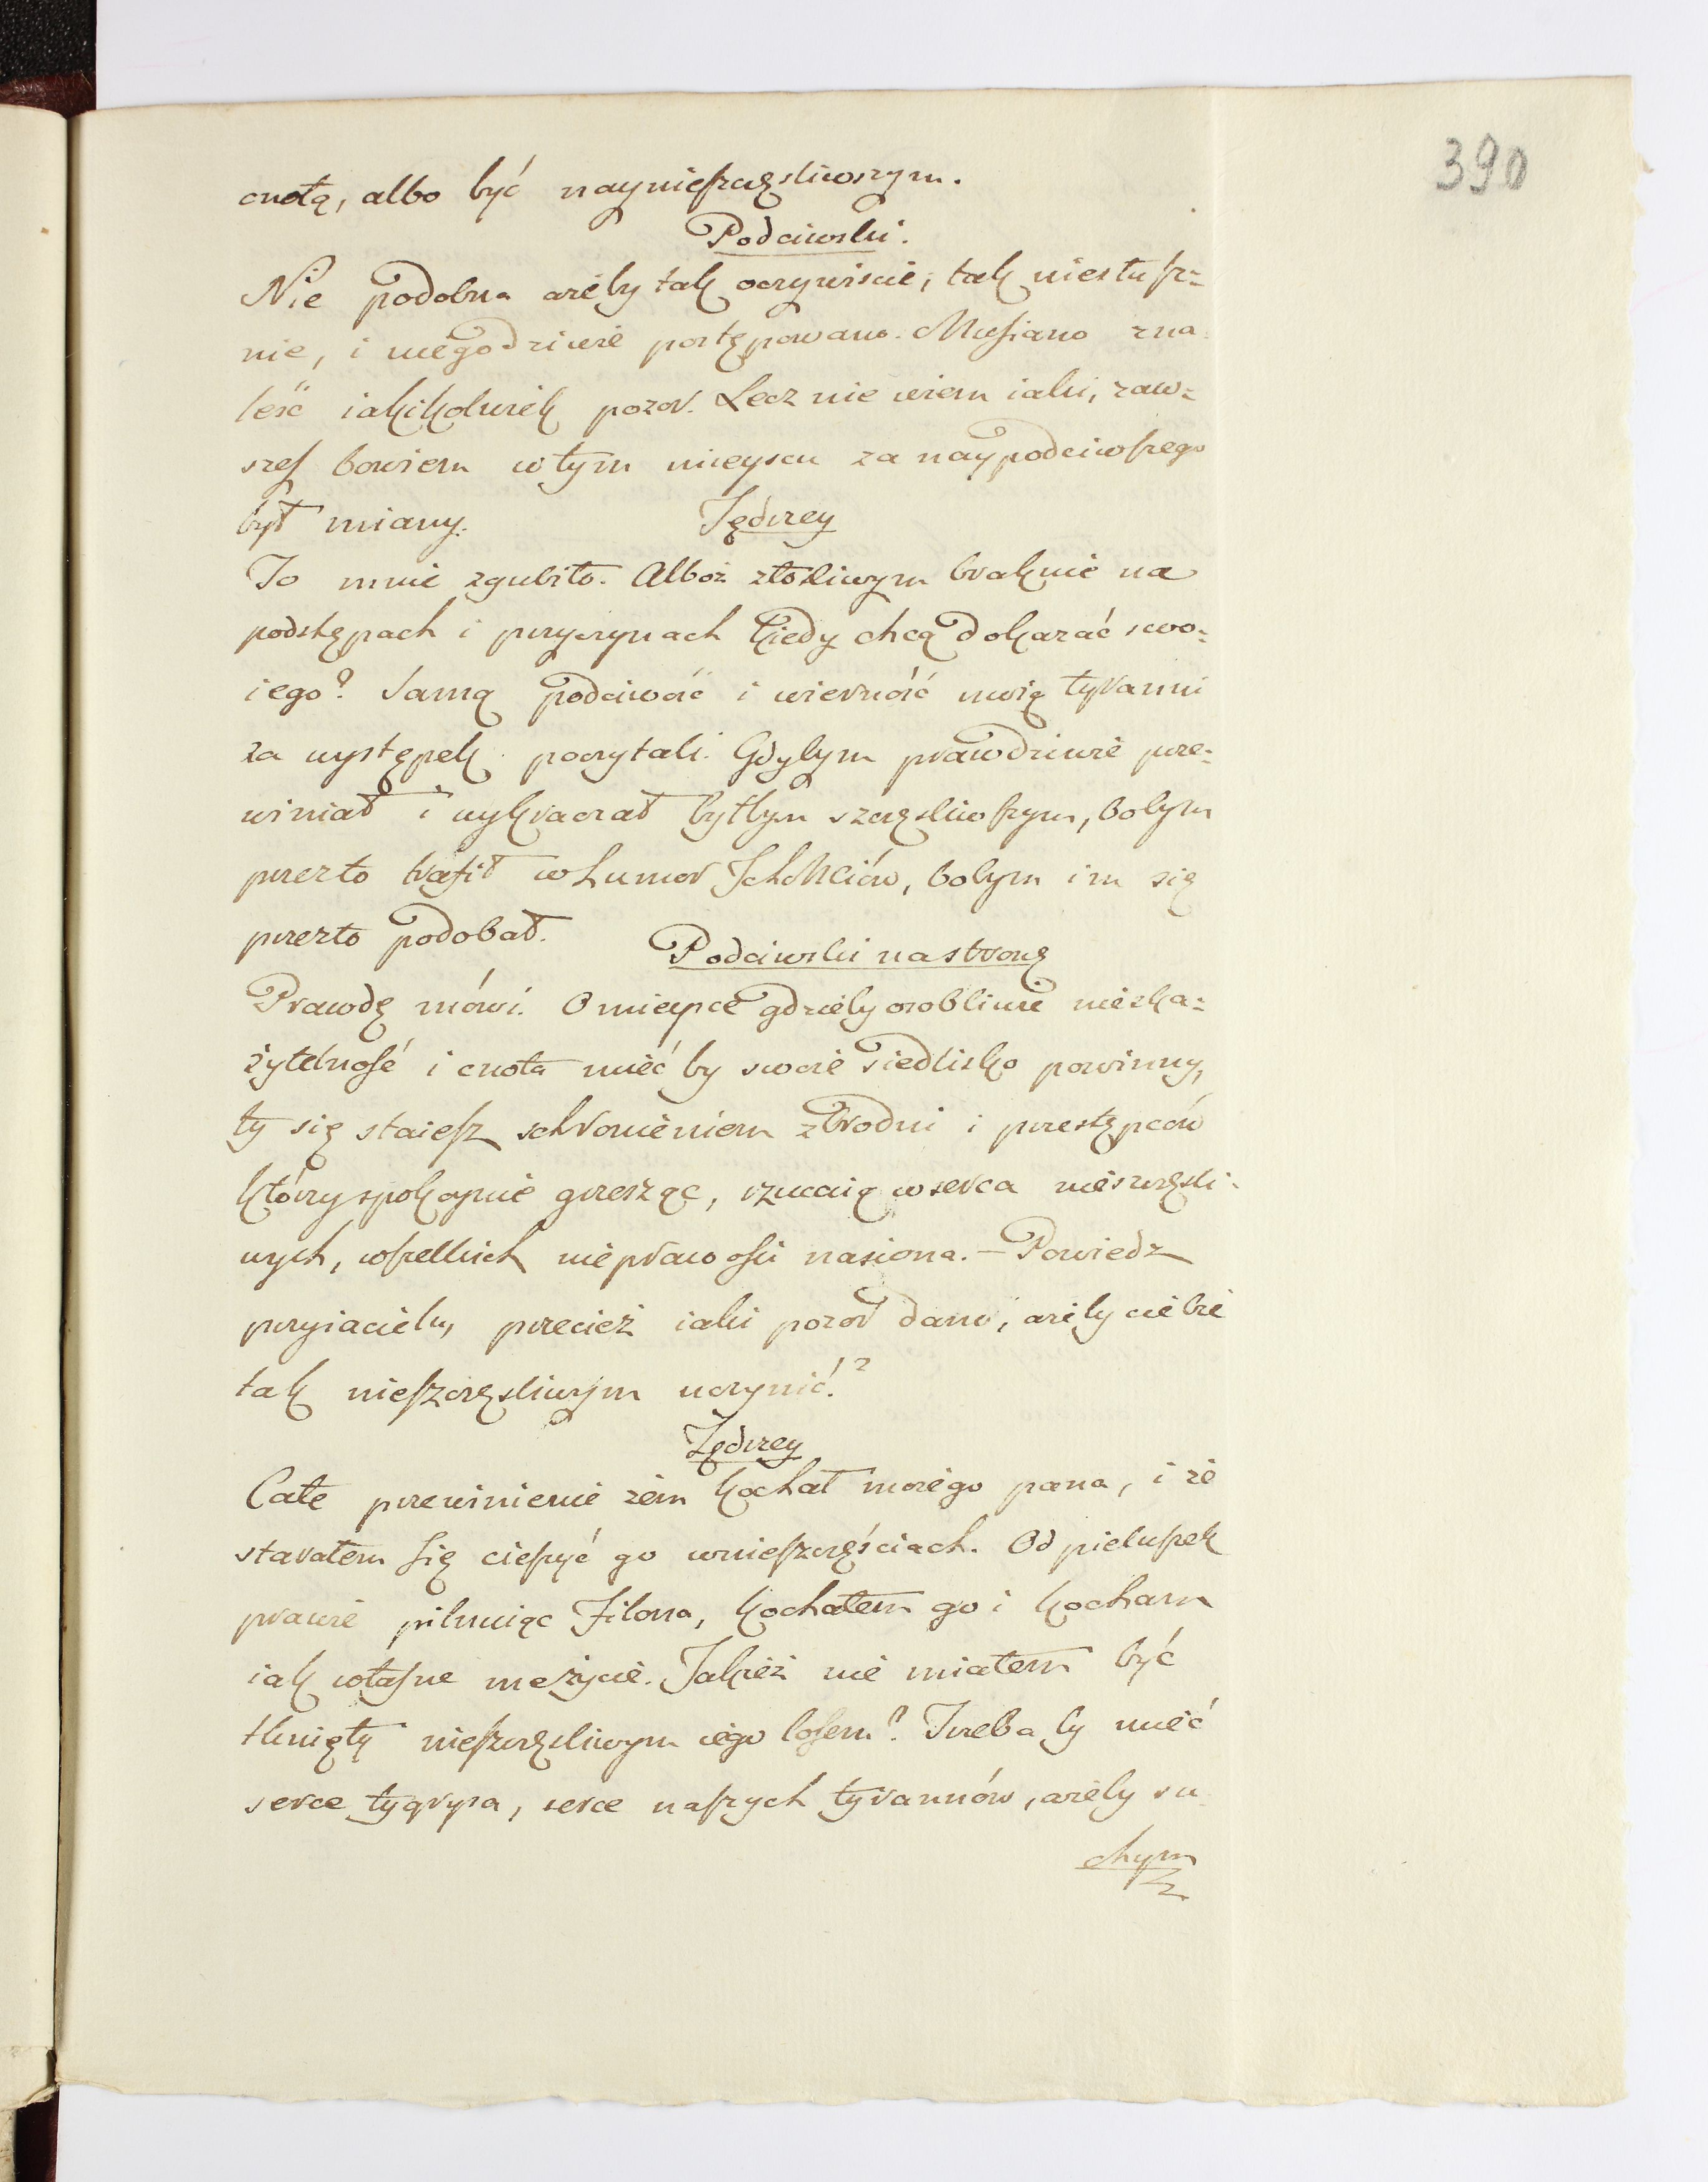 390
cnotą, albo być naynieſzczęsliwszym.
Podciwski.
Nie podobna ażeby tak oczywiscie, tak niesłuſz=
nie, i niegodziwie postępowano. Muſiano zna
leść iakikolwiek pozor. Lecz nie wiem iaki, zaw=
szeſ bowiem w tym mieyscu za naypodciwſzego
był miany.
Jędrzey
To mnie zgubiło. Alboż złosliwym braknie na
podstępach i przyczynach kiedy chcą dokazać swo=
iego? Samą podciwość i wierność moię tyranni
za występek poczytali. Gdybym prawdziwie prze=
winiał i wykraczał byłbym szczęsliwſzym, bobym
przezto trafił w humor IchMciów, bobym im się
przezto podobał.
Podciwski na stronę
Prawdę mówi. O mieysce gdzieby osobliwie nieska=
żytelność i cnota mieć by swoie siedlisko powinny,
ty się staieſz schronieniem zbrodni i przestępców
którzy spokoynie grzesząc, rzucaią w serca nieszczęsli=
wych, wſzelkich nieprawoſci nasiona. – Powiedz
przyiacielu, przecież iaki pozor dano, ażeby ciebie
tak nieſzczęsliwym uczynić?
Jędrzey
Całe przewinienie żem kochał moiego pana, i że
starałem ſię cieſzyć go w nieſzczęściach. Od pieluſzek
prawie pilnuiąc Filona, kochałem go i kocham
iak własne me życie. Jakież nie miałem być
tknięty nieſzczęsliwym iego loſem? Trzeba by mieć
serce tygrysa, serce naſzych tyrannów, ażeby su
chym